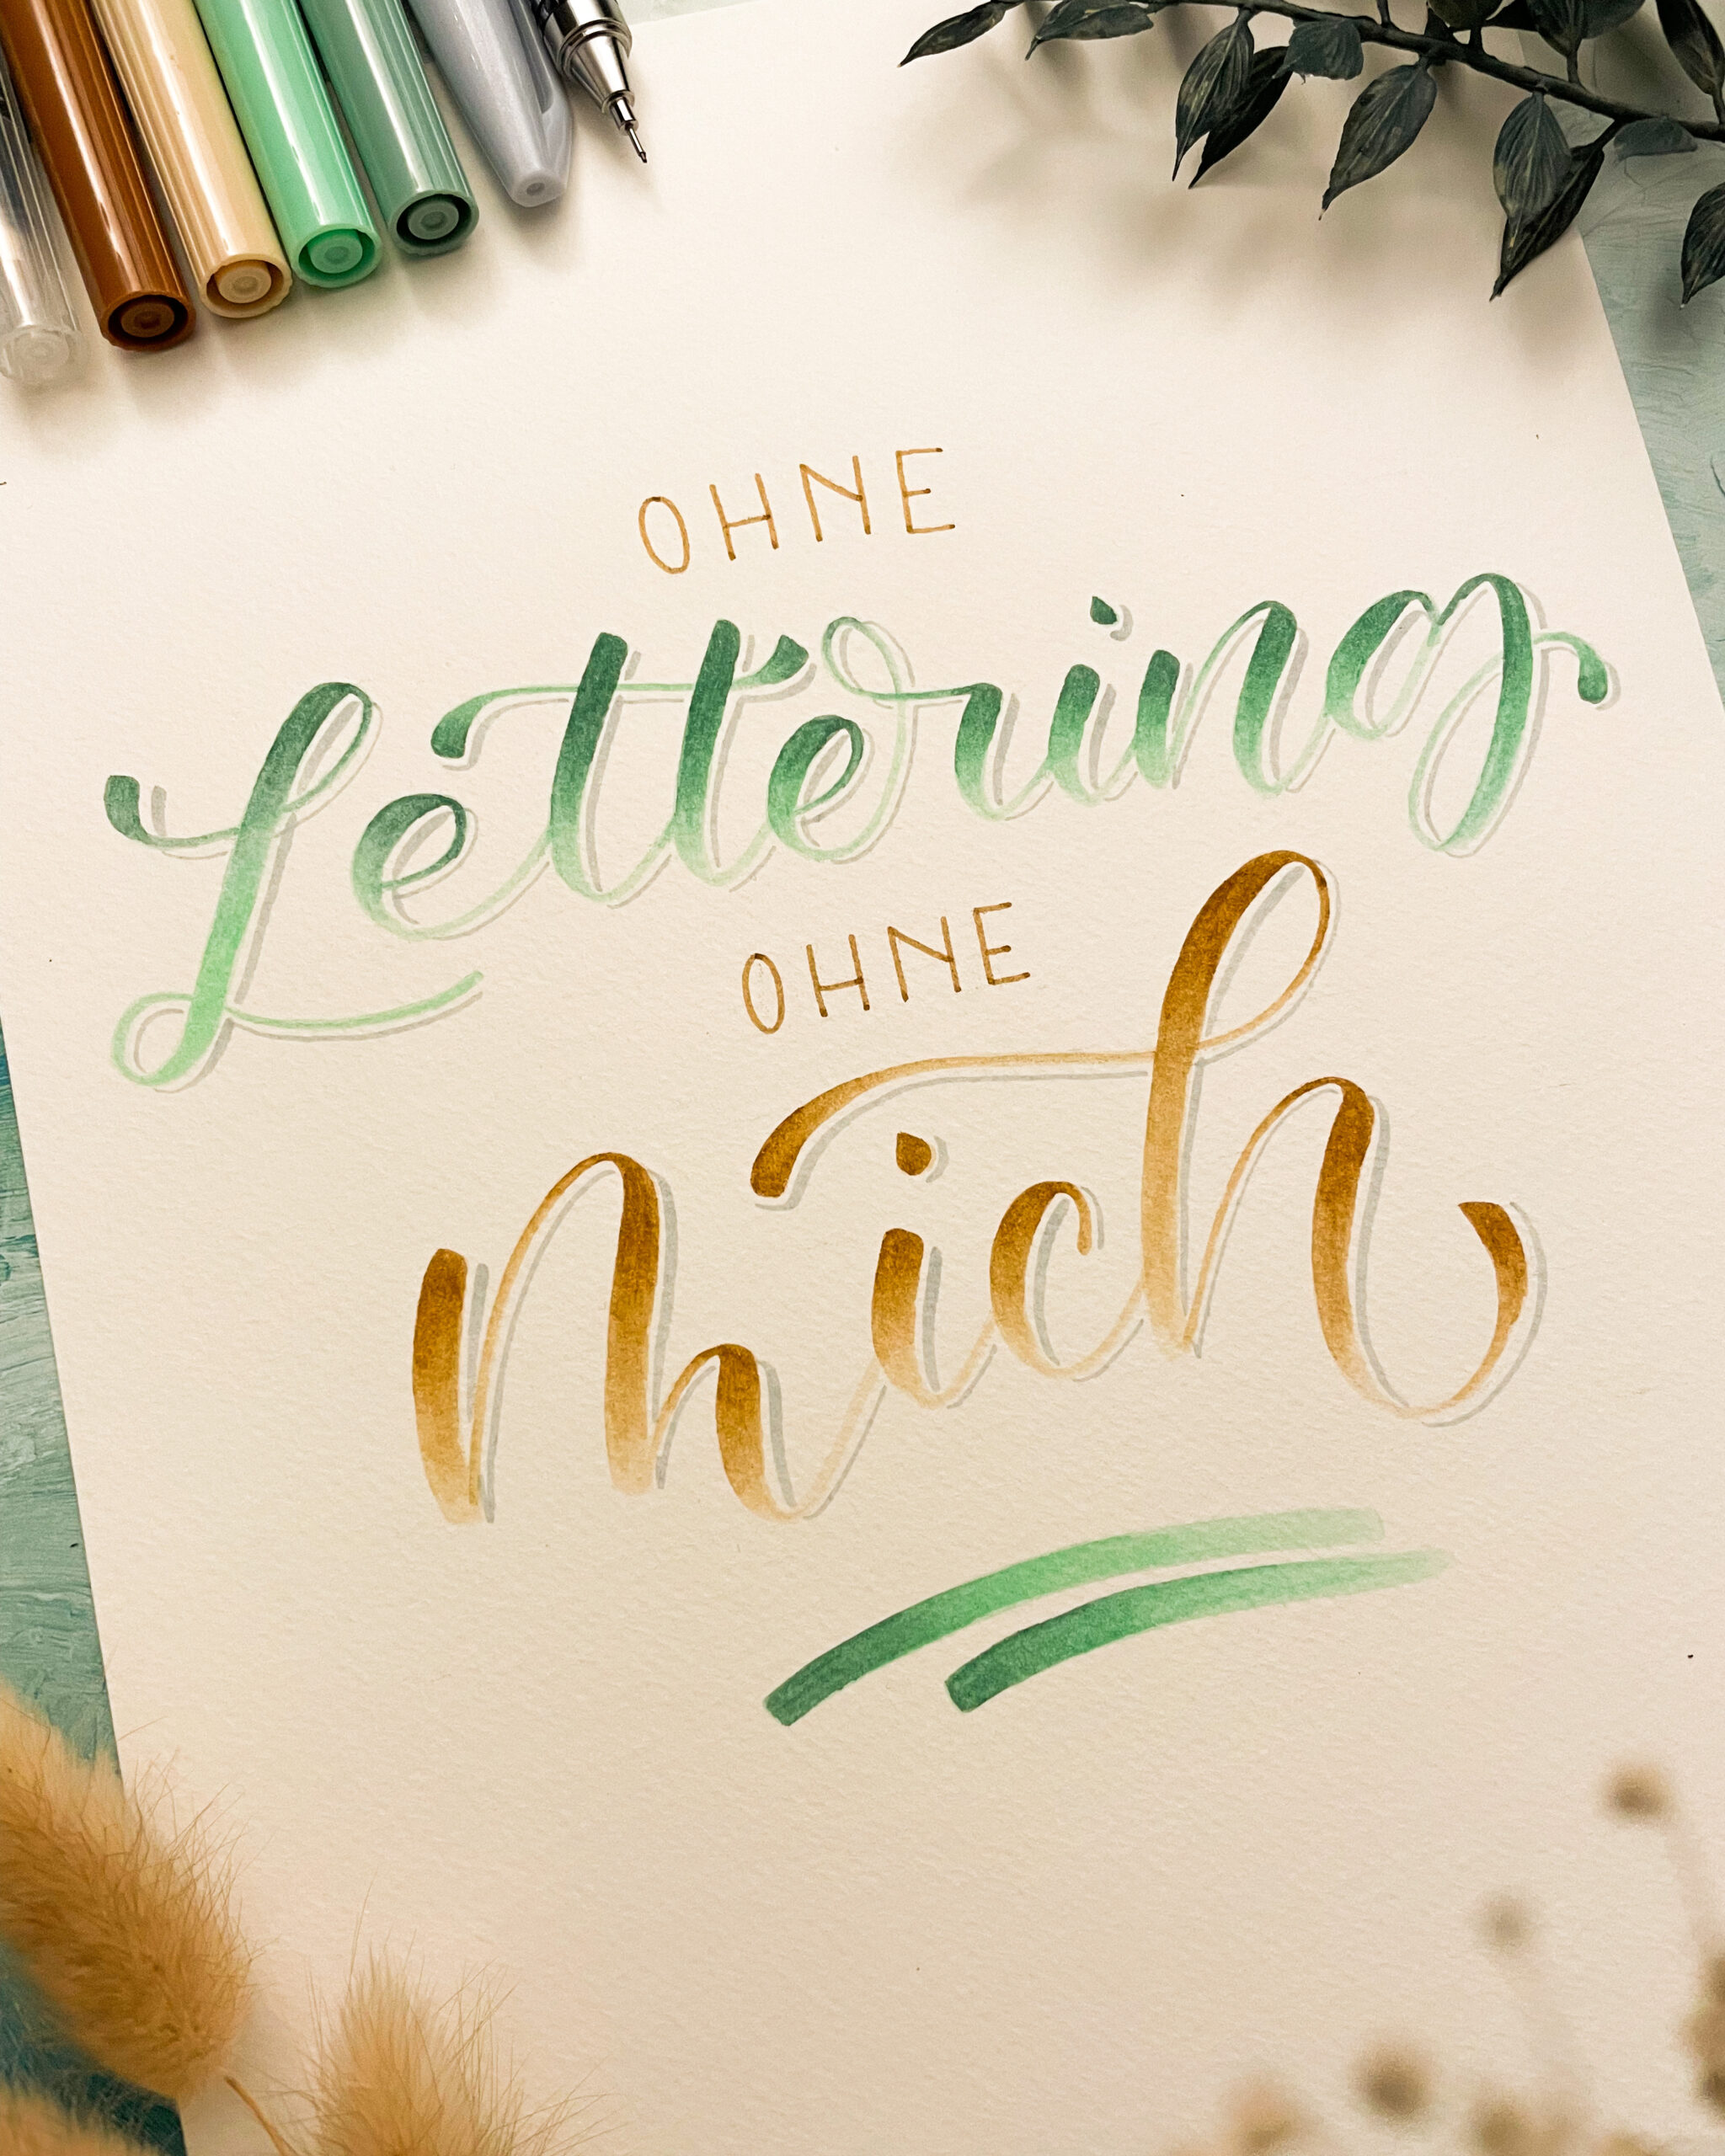 OHNE
Lettering
OHNE
Mich